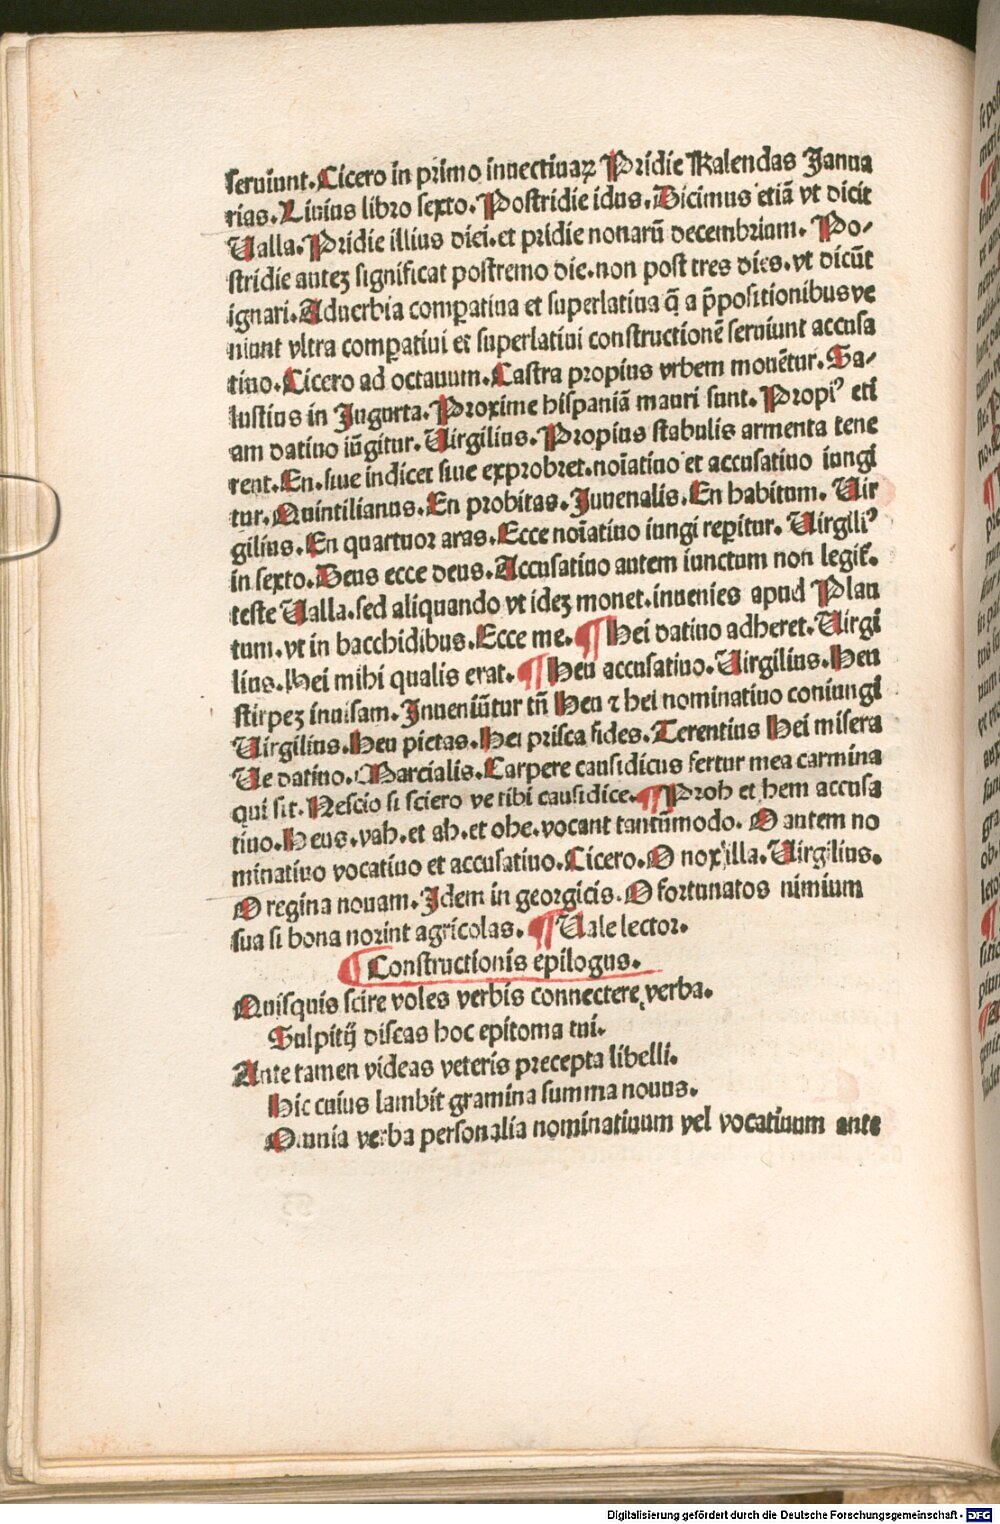 seruiunt. Cicero in primo inuectiuaꝝ Pridie Kalendas Janua
rias. Liuius libro sexto. Postridie idus. Dicimus etiā vt dicit
Ualla. Pridie illius diei. et pridie nonarū decembrium. Po-
stridie auteꝫ significat postremo die. non post tres dies. vt dicūt
ignari. Aduerbia comꝑatiua et superlatiua q̄ a p̄positionibus ve
niunt vltra comꝑatiui et superlatiui constructionē seruiunt accusa
tiuo. Cicero ad octauum. Castra propius vrbem mouētur. Sa-
lustius in Jugurta. Proxime hispaniā mauri sunt. Propiꝰ eti
am datiuo iūgitur. Uirgilius. Propius stabulis armenta tene
rent. En. siue indicet siue exprobret. noīatiuo et accusatiuo iungi
tur. Quintilianus. En probitas. Juuenalis. En habitum. Uir
gilius. En quattuor aras. Ecce noīatiuo iungi reꝑitur. Uirgiliꝰ
in sexto. Deus ecce deus. Accusatiuo autem iunctum non legiť.
teste Ualla. sed aliquando vt ideꝫ monet. inuenies apud Plau
tum. vt in bacchidibus. Ecce me. ¶ Hei datiuo adheret. Uirgi
lius. Hei mihi qualis erat. ¶ Heu accusatiuo. Uirgilius. Heu
stirpeꝫ inuisam. Inueniūtur tn̄ Heu ⁊ hei nominatiuo coniungi
Uirgilius. Heu pietas. Hei prisca fides. Terentius Hei misera
Ue datiuo. Marcialis. Carpere causidicus fertur mea carmina
qui sit. Nescio si sciero ve tibi causidice. ¶ Proh et hem accusa
tiuo. Heus. vah. et ah. et ohe. vocant tantūmodo. O autem no
minatiuo vocatiuo et accusatiuo. Cicero. O nox illa. Uirgilius.
O regina nouam. Idem in georgicis. O fortunatos nimium
sua si bona norint agricolas. ¶ Uale lector.
¶ Constructionis epilogus.
Quisquis scire voles verbis connectere verba.
Sulpitij discas hoc epitoma tui.
Ante tamen videas veteris precepta libelli.
Hic cuius lambit gramina summa nouus.
Omnia verba personalia nominatiuum vel vocatiuum ante
Digitalisierung gefördert durch die Deutsche Forschungsgemeinschaft - DFG